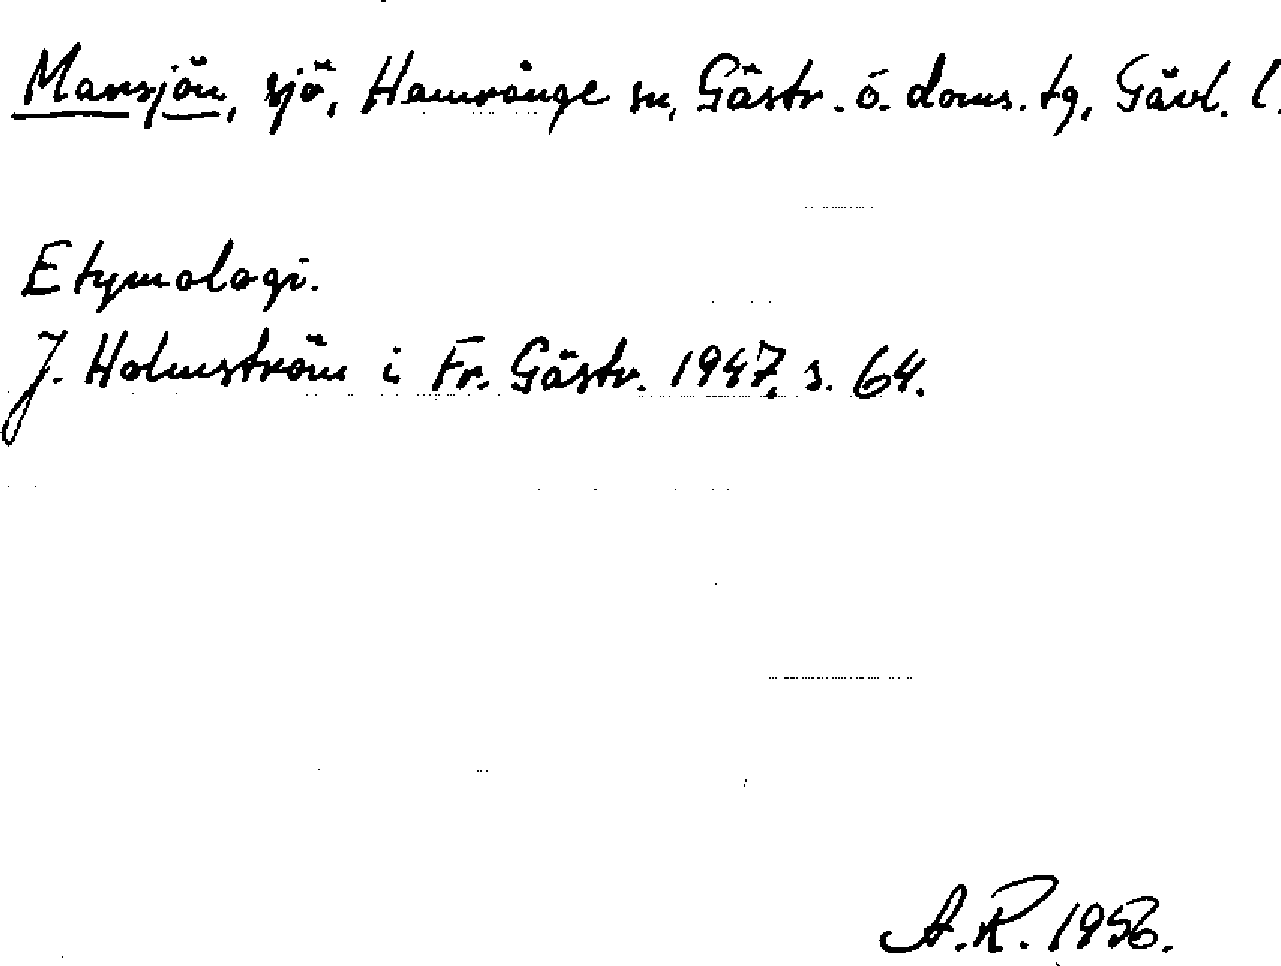 Marsjön, sjö, Hamrånge sn, Gästr. ö. doms. tg, Gävl. l.
Etymologi.
J. Holmström i Fr. Gästr. 1947, s. 64.
A.R. 1956.